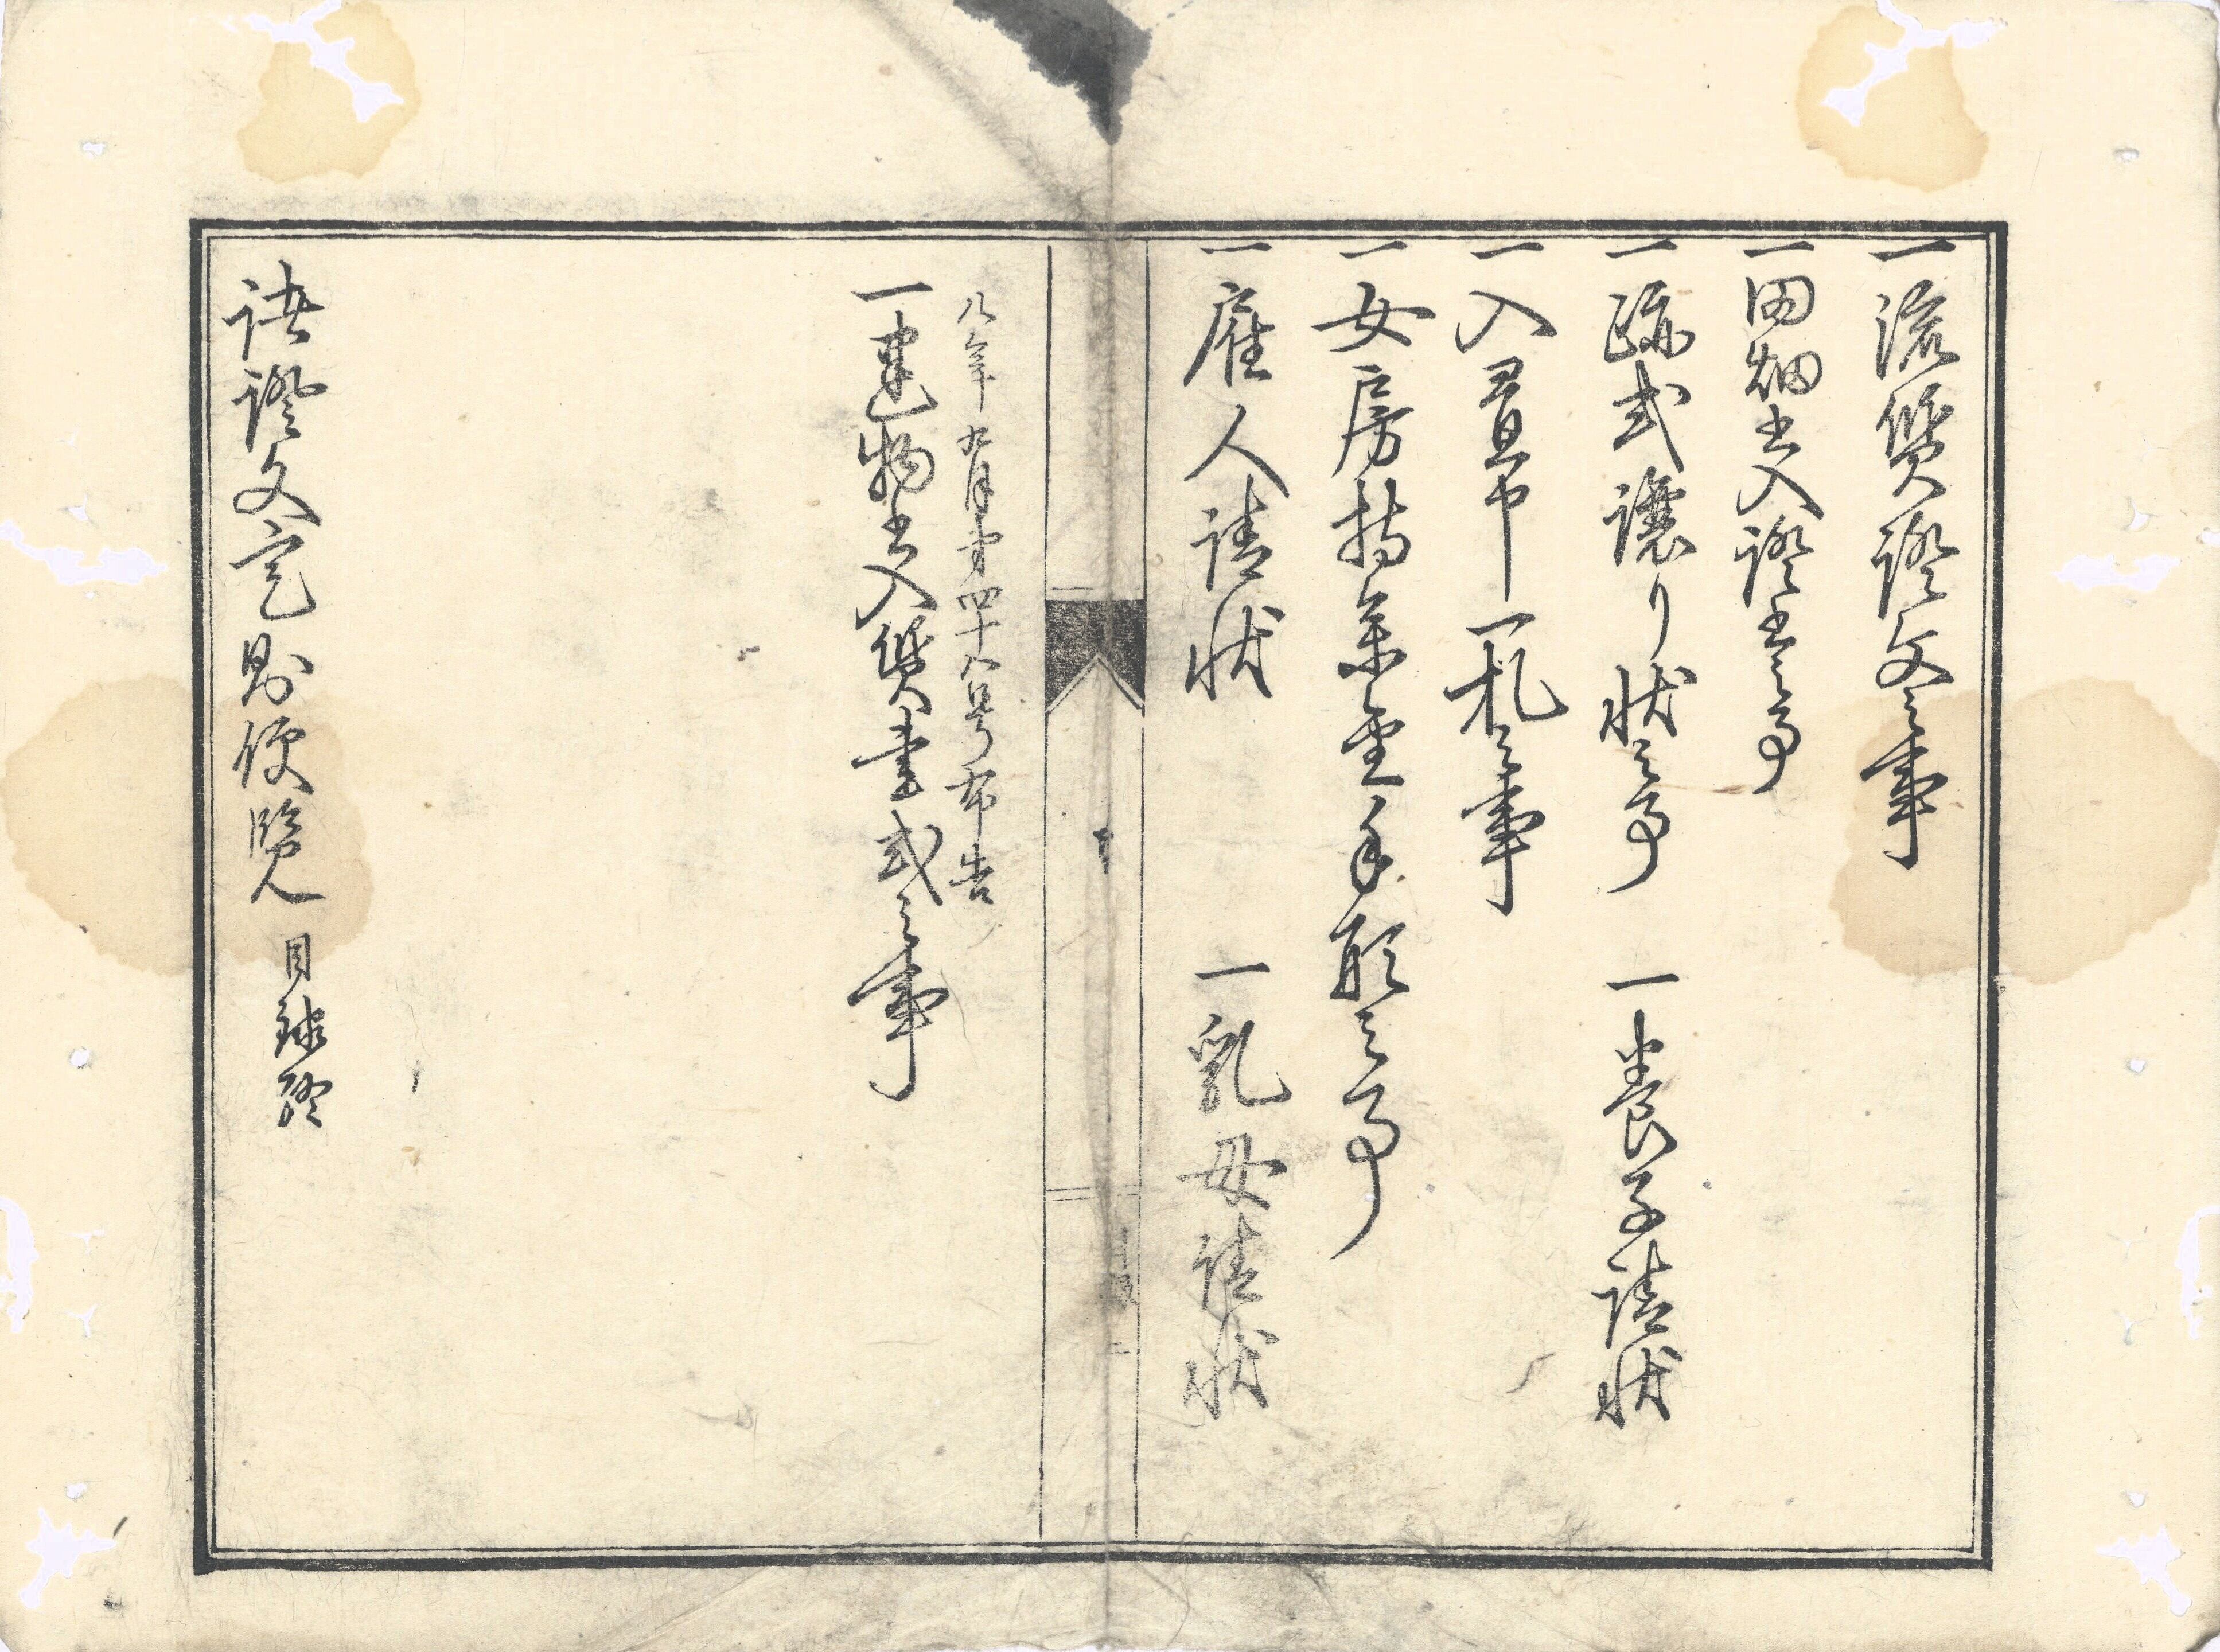 一流質證文之事
一田畑書入證書之事
一跡式譲り状之事　一養子請状
一入置申一札之事
一女房持参金手形之事
一雇人請状　一乳母請状
八年九月第四十八号布告
一建物書入質書式之事
諸證文定則便覧 目録終